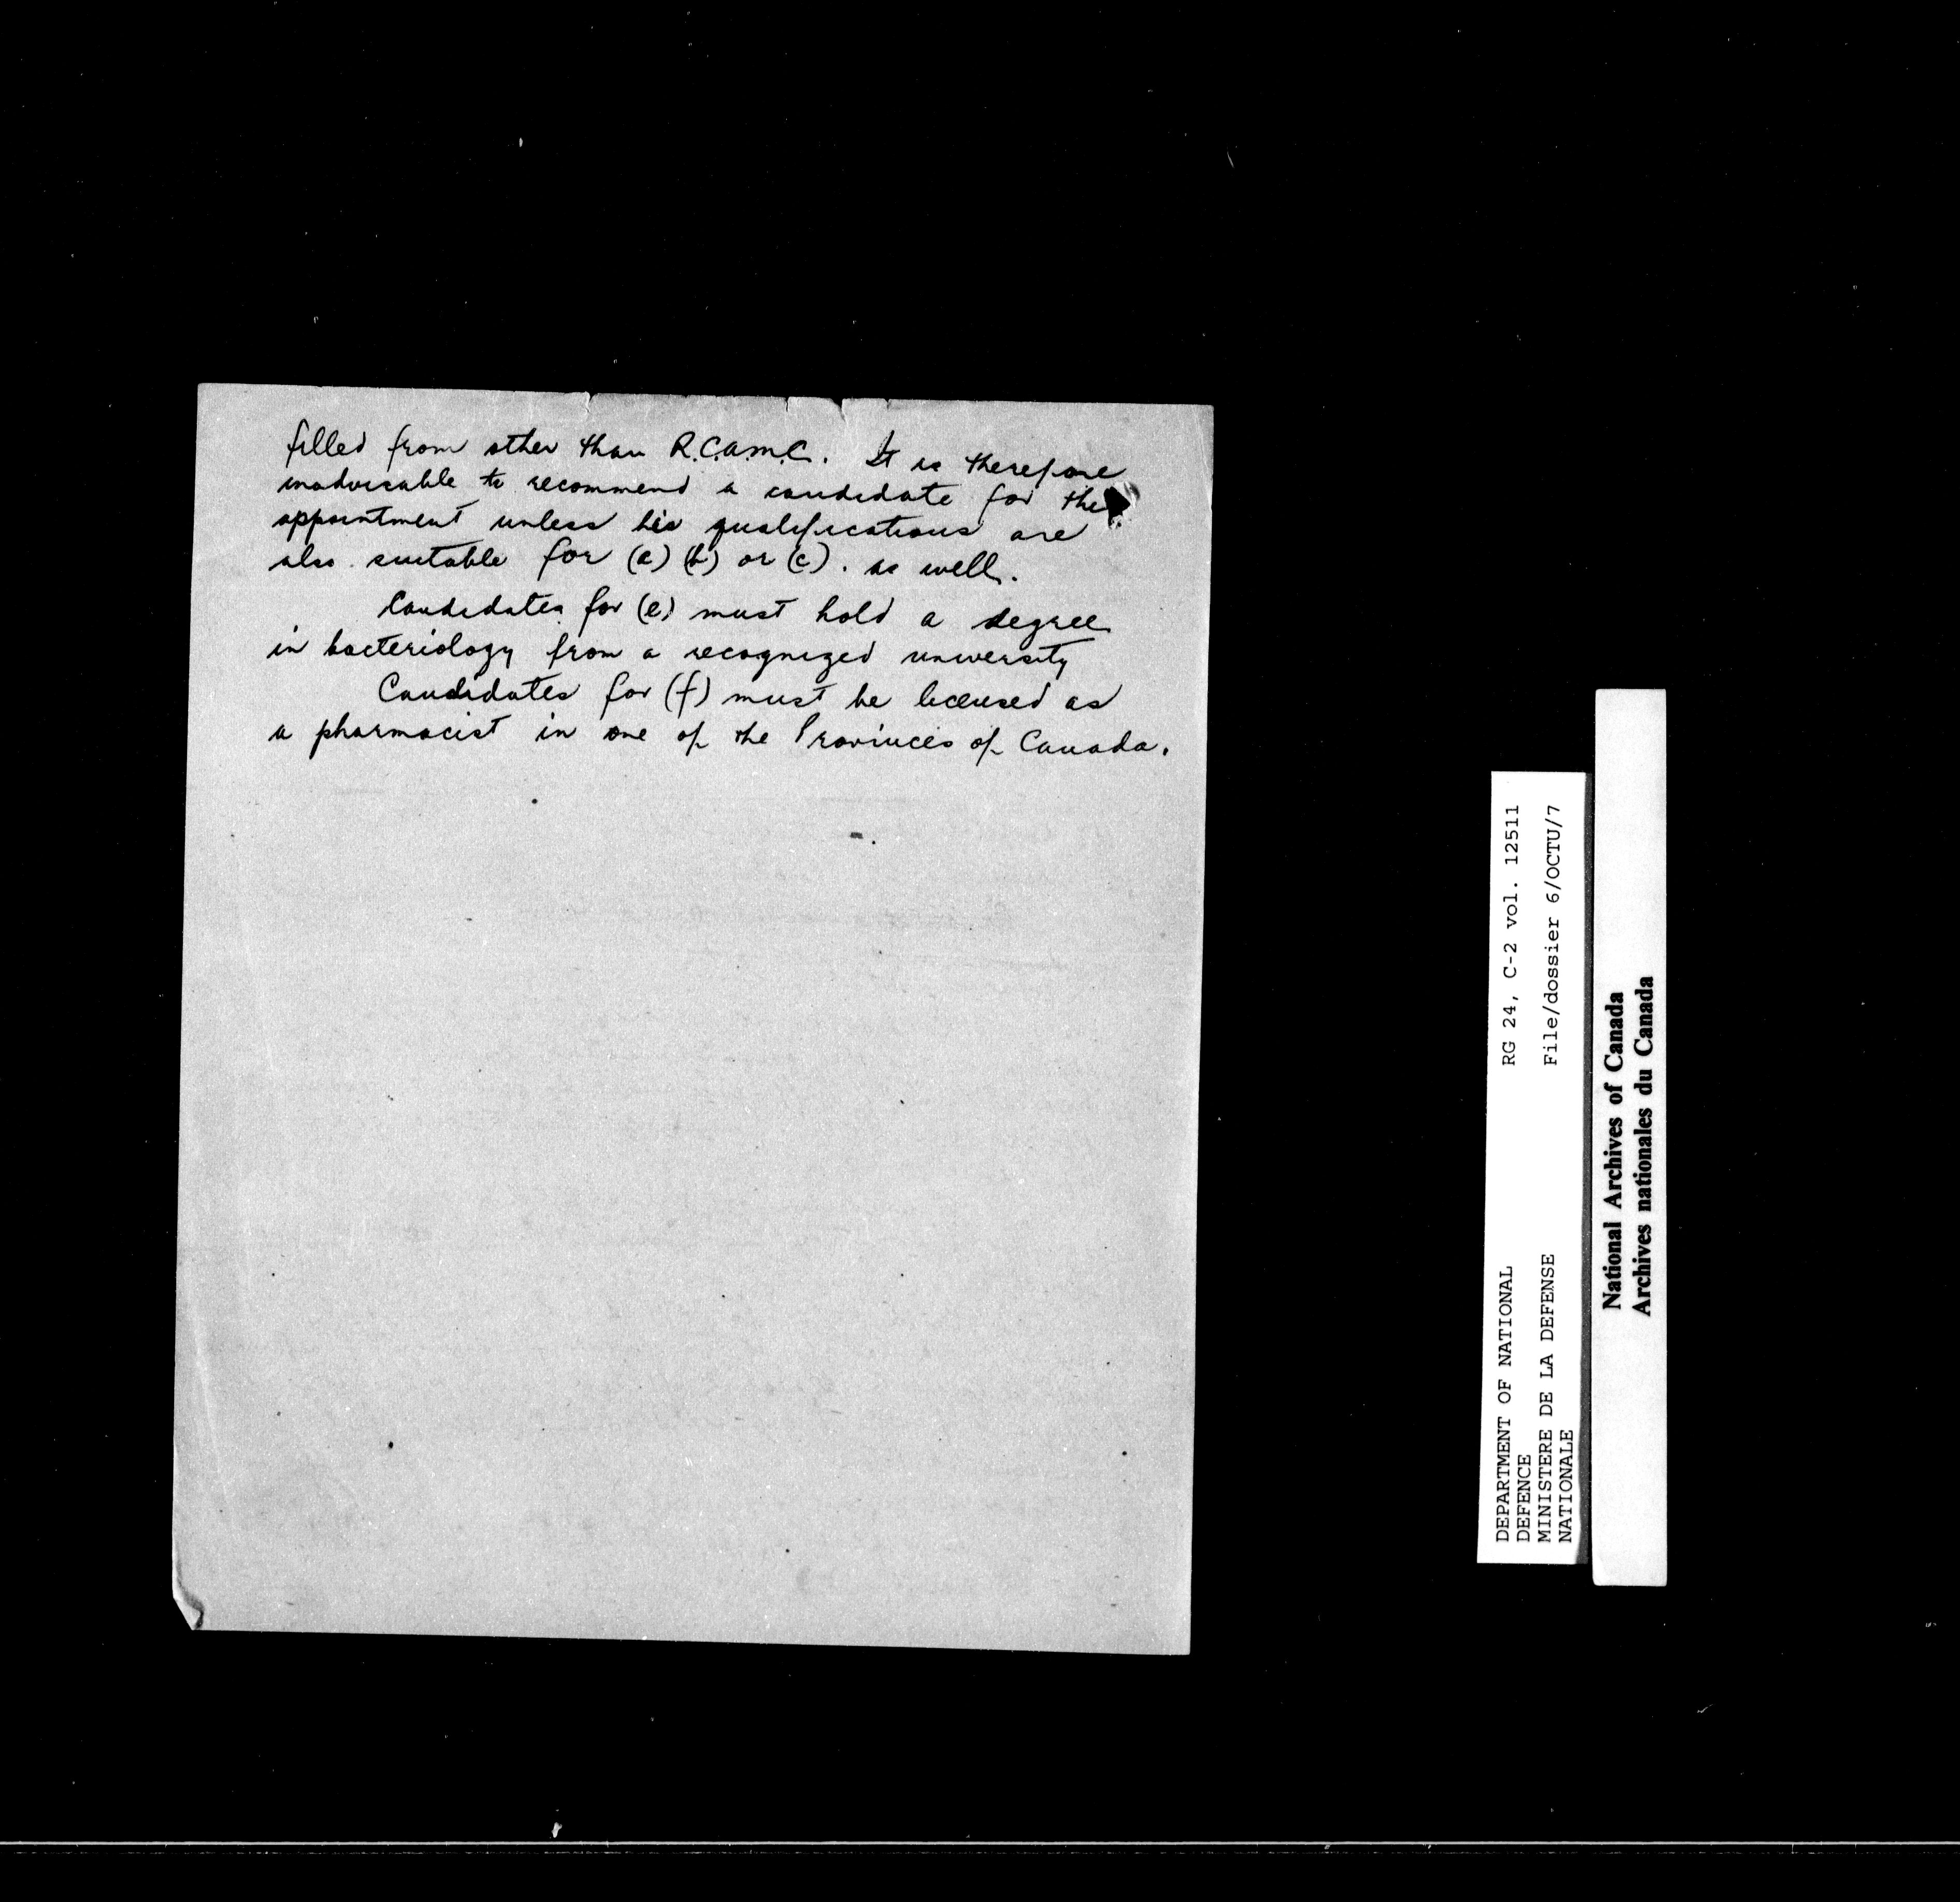 filled from other than R.C.A.M.C. It is therefore
inadvisable to recommend a candidate for the
appointment unless his qualifications are
also suitable for (a) (b) or (c). as well.
Candidates for (e) must hold a degree
in bacteriology from a recognized university
Candidates for (f) must be licensed as
a pharmacist in one of the Provinces of Canada.
DEPARTMENT OF NATIONAL
DEFENCE
MINISTERE DE LA DEFENSE
NATIONALE
RG 24, C-2 vol. 12511
File/dossier 6/OCTU/7
National Archives of Canada
Archives nationales du Canada